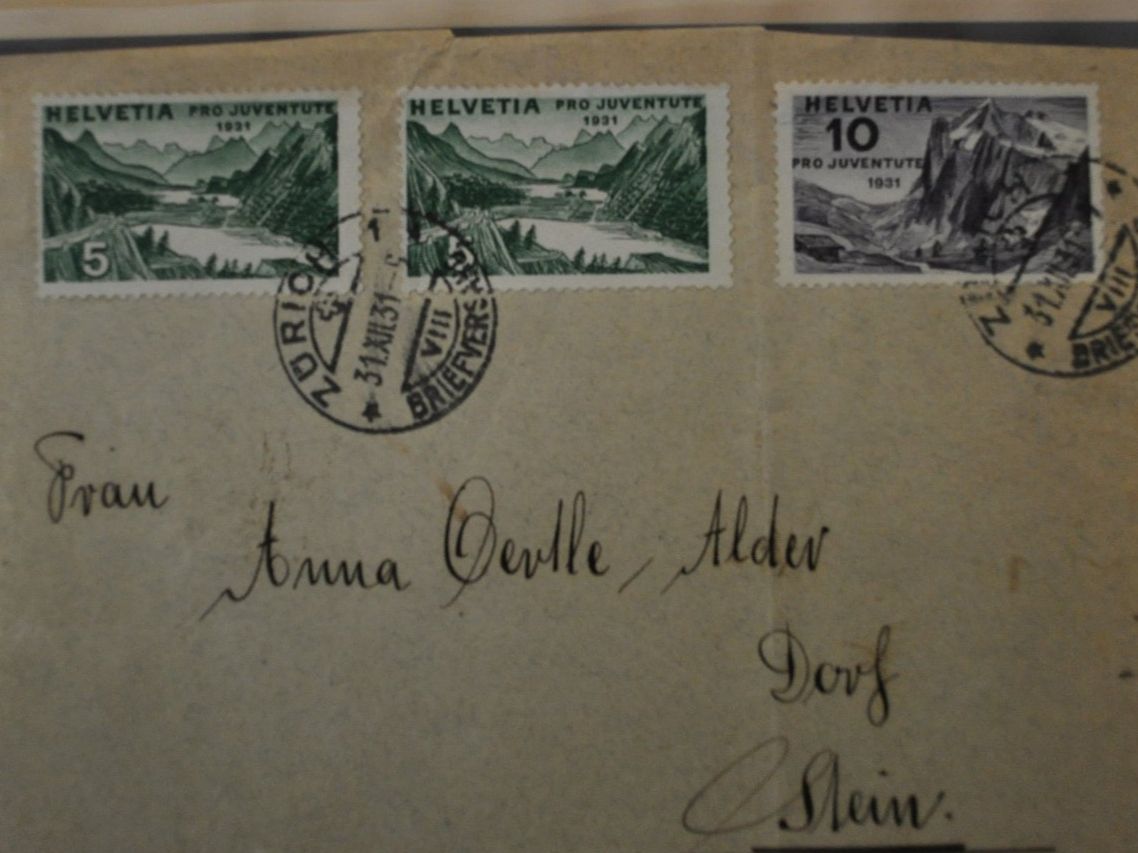 HELVETIA PRO JUVENTUTE
1931
5
HELVETIA PRO JUVENTUTE
1931
5
HELVETIA
10
PRO JUVENTUTE
1931
ZÜRICH 1
31.XII.31
VIII
BRIEFVERS
Z
31.XII.31
VIII
BRIE
Frau
Anna Oertle, Alder
Dorf
Stein.